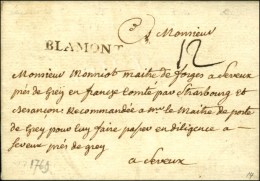 Monsieur
BLAMONT
12
Monsieur Monniot maitre de forges a Seveux
prés de Grey en franche Comté par Strasbourg et
Besançon: Recommandée a mr le Maitre de poste
de Grey pour luy faire passer en diligence a
Seveux prés de grey
a Seveux
1769